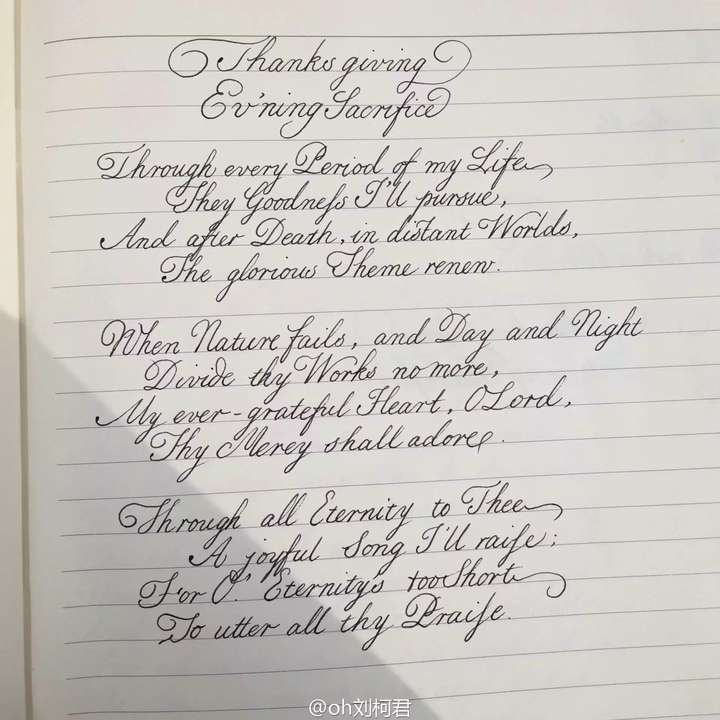 Thanksgiving
Ev'ning Sacrifice
Through every Period of my Life
They Goodneſs I'll pursue,
And after Death, in distant Worlds,
The glorious Theme renew.
When Nature fails, and Day and Night
Divide thy Works no more,
My ever-grateful Heart, O Lord,
Thy Mercy shall adore.
Through all Eternity to Thee
A joyful Song I'll raiſe;
For O! Eternity's too Short
To utter all thy Praiſe.
@oh刘柯君